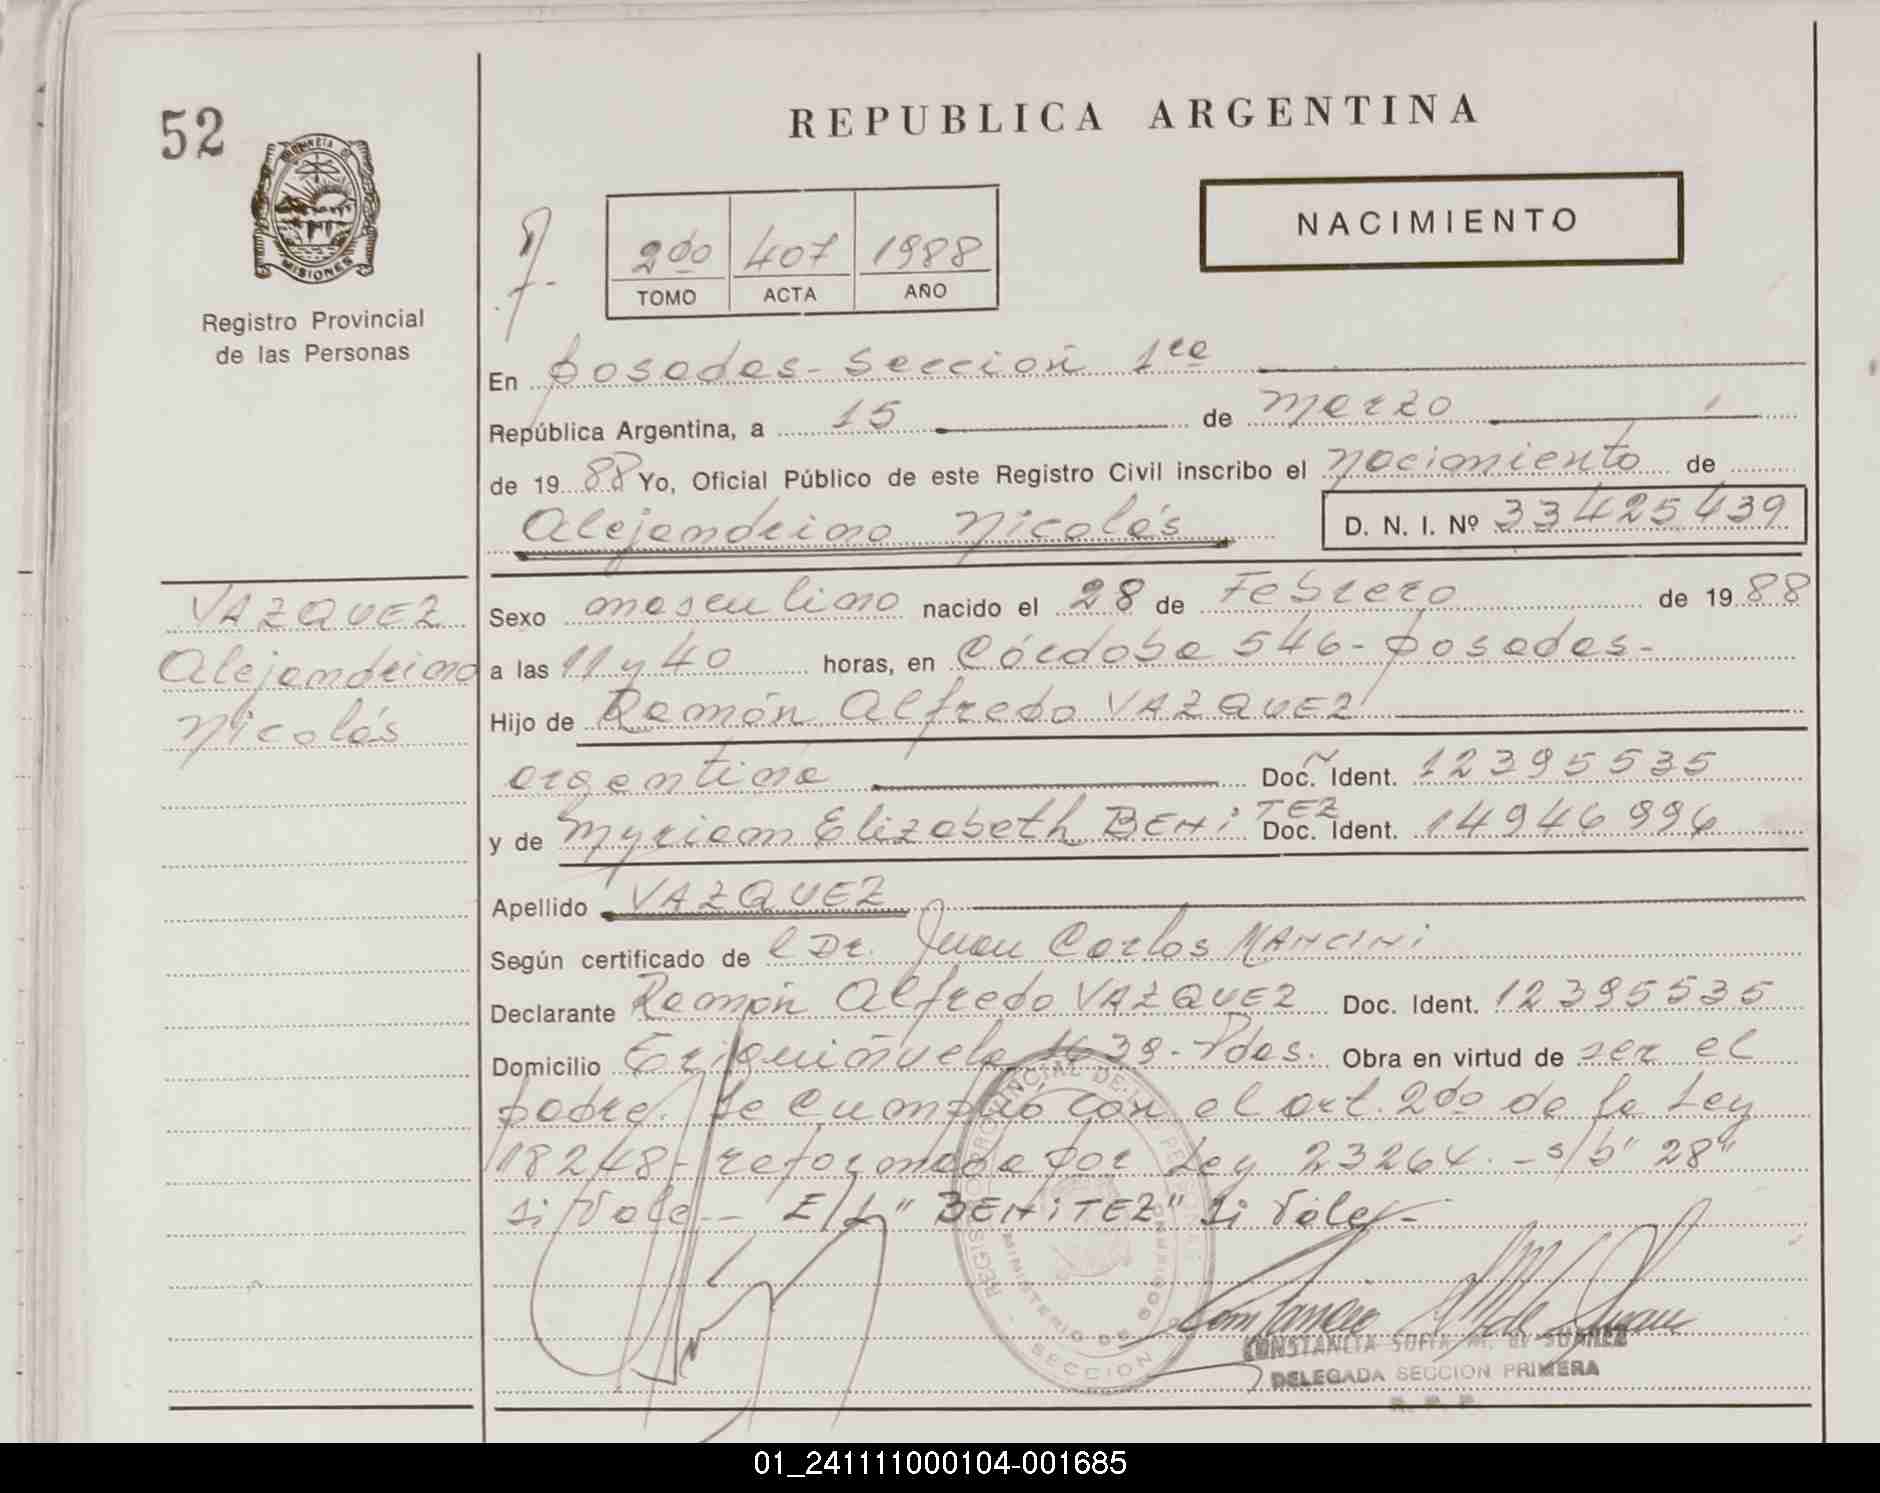 52
REPUBLICA ARGENTINA
PROVINCIA DE
MISIONES
Registro Provincial
de las Personas
2do 407 1988
TOMO ACTA AÑO
NACIMIENTO
En posadas - Sección 1ra
República Argentina, a 15 de marzo
de 1988 Yo, Oficial Público de este Registro Civil inscribo el nacimiento de
Alejandrino Nicolás D. N. I. Nº 33425439
VAZQUEZ
Alejandrino
Nicolás
Sexo masculino nacido el 28 de Febrero de 1988
a las 11 y 40 horas, en Córdoba 546 - posadas -
Hijo de Ramón Alfredo VAZQUEZ
argentina Doc. Ident. 12395535
y de Myriam Elizabeth BENiTEZ Doc. Ident. 14946996
Apellido VAZQUEZ
Según certificado de l Dr. Juan Carlos MANCINi
Declarante Ramón Alfredo VAZQUEZ Doc. Ident. 12395535
Domicilio 1639 - Pdas. Obra en virtud de ser el
padre. Se cumplió con el art. 2do de la Ley
18248 - reformada por Ley 23264. - s/b "28"
si vale -- E/L "BENiTEZ" si vale -
REGISTRO PROVINCIAL DE LAS PERSONAS
MINISTERIO DE GOBIERNO
SECCION
CONSTANCIA SOFIA M. DE SUAREZ
DELEGADA SECCION PRIMERA
R. P. P.
01_241111000104-001685